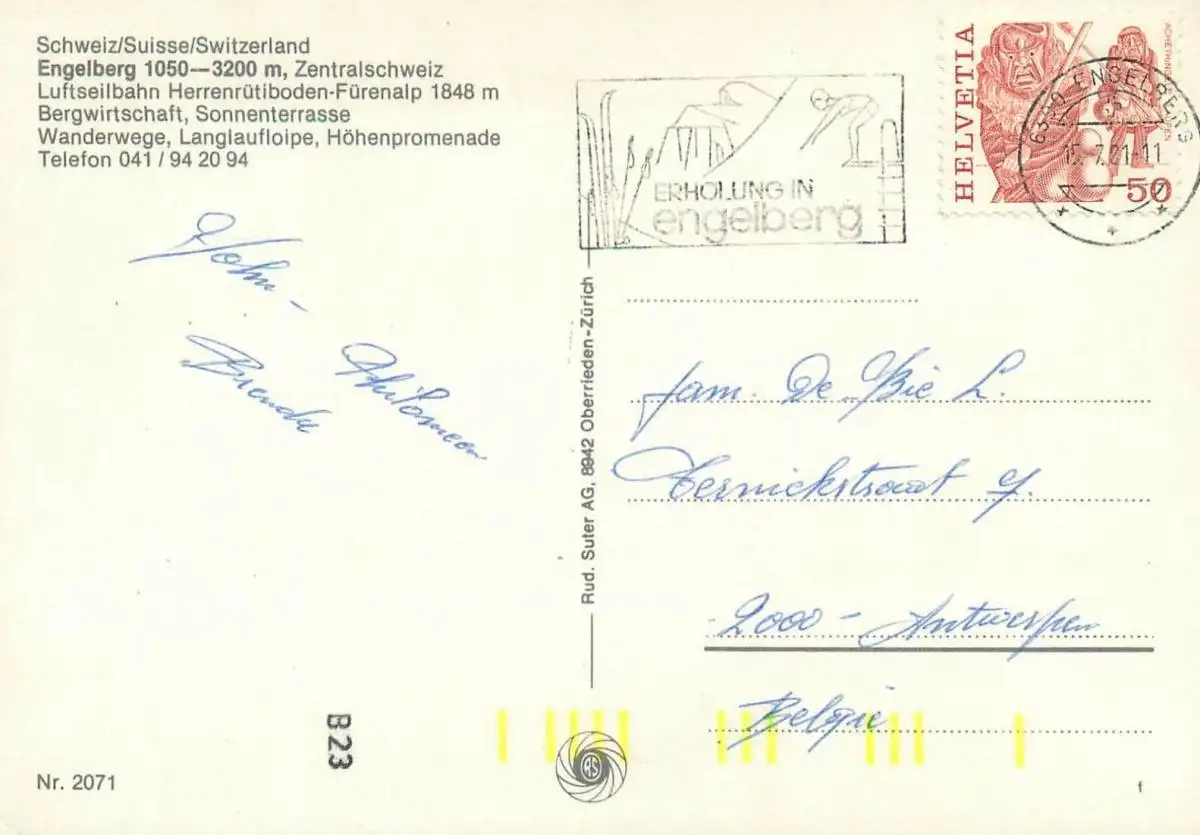 Schweiz/Suisse/Switzerland
Engelberg 1050—3200 m, Zentralschweiz
Luftseilbahn Herrenrütiboden-Fürenalp 1848 m
Bergwirtschaft, Sonnenterrasse
Wanderwege, Langlaufloipe, Höhenpromenade
Telefon 041 / 94 20 94
ERHOLUNG IN
engelberg
HELVETIA
50
6390 ENGELBERG
John -
Philomeen
Brenda
Rud. Suter AG, 8942 Oberrieden-Zürich
fam. De Bie L.
2000 - Antwerpen
België
B23
RS
Nr. 2071
f